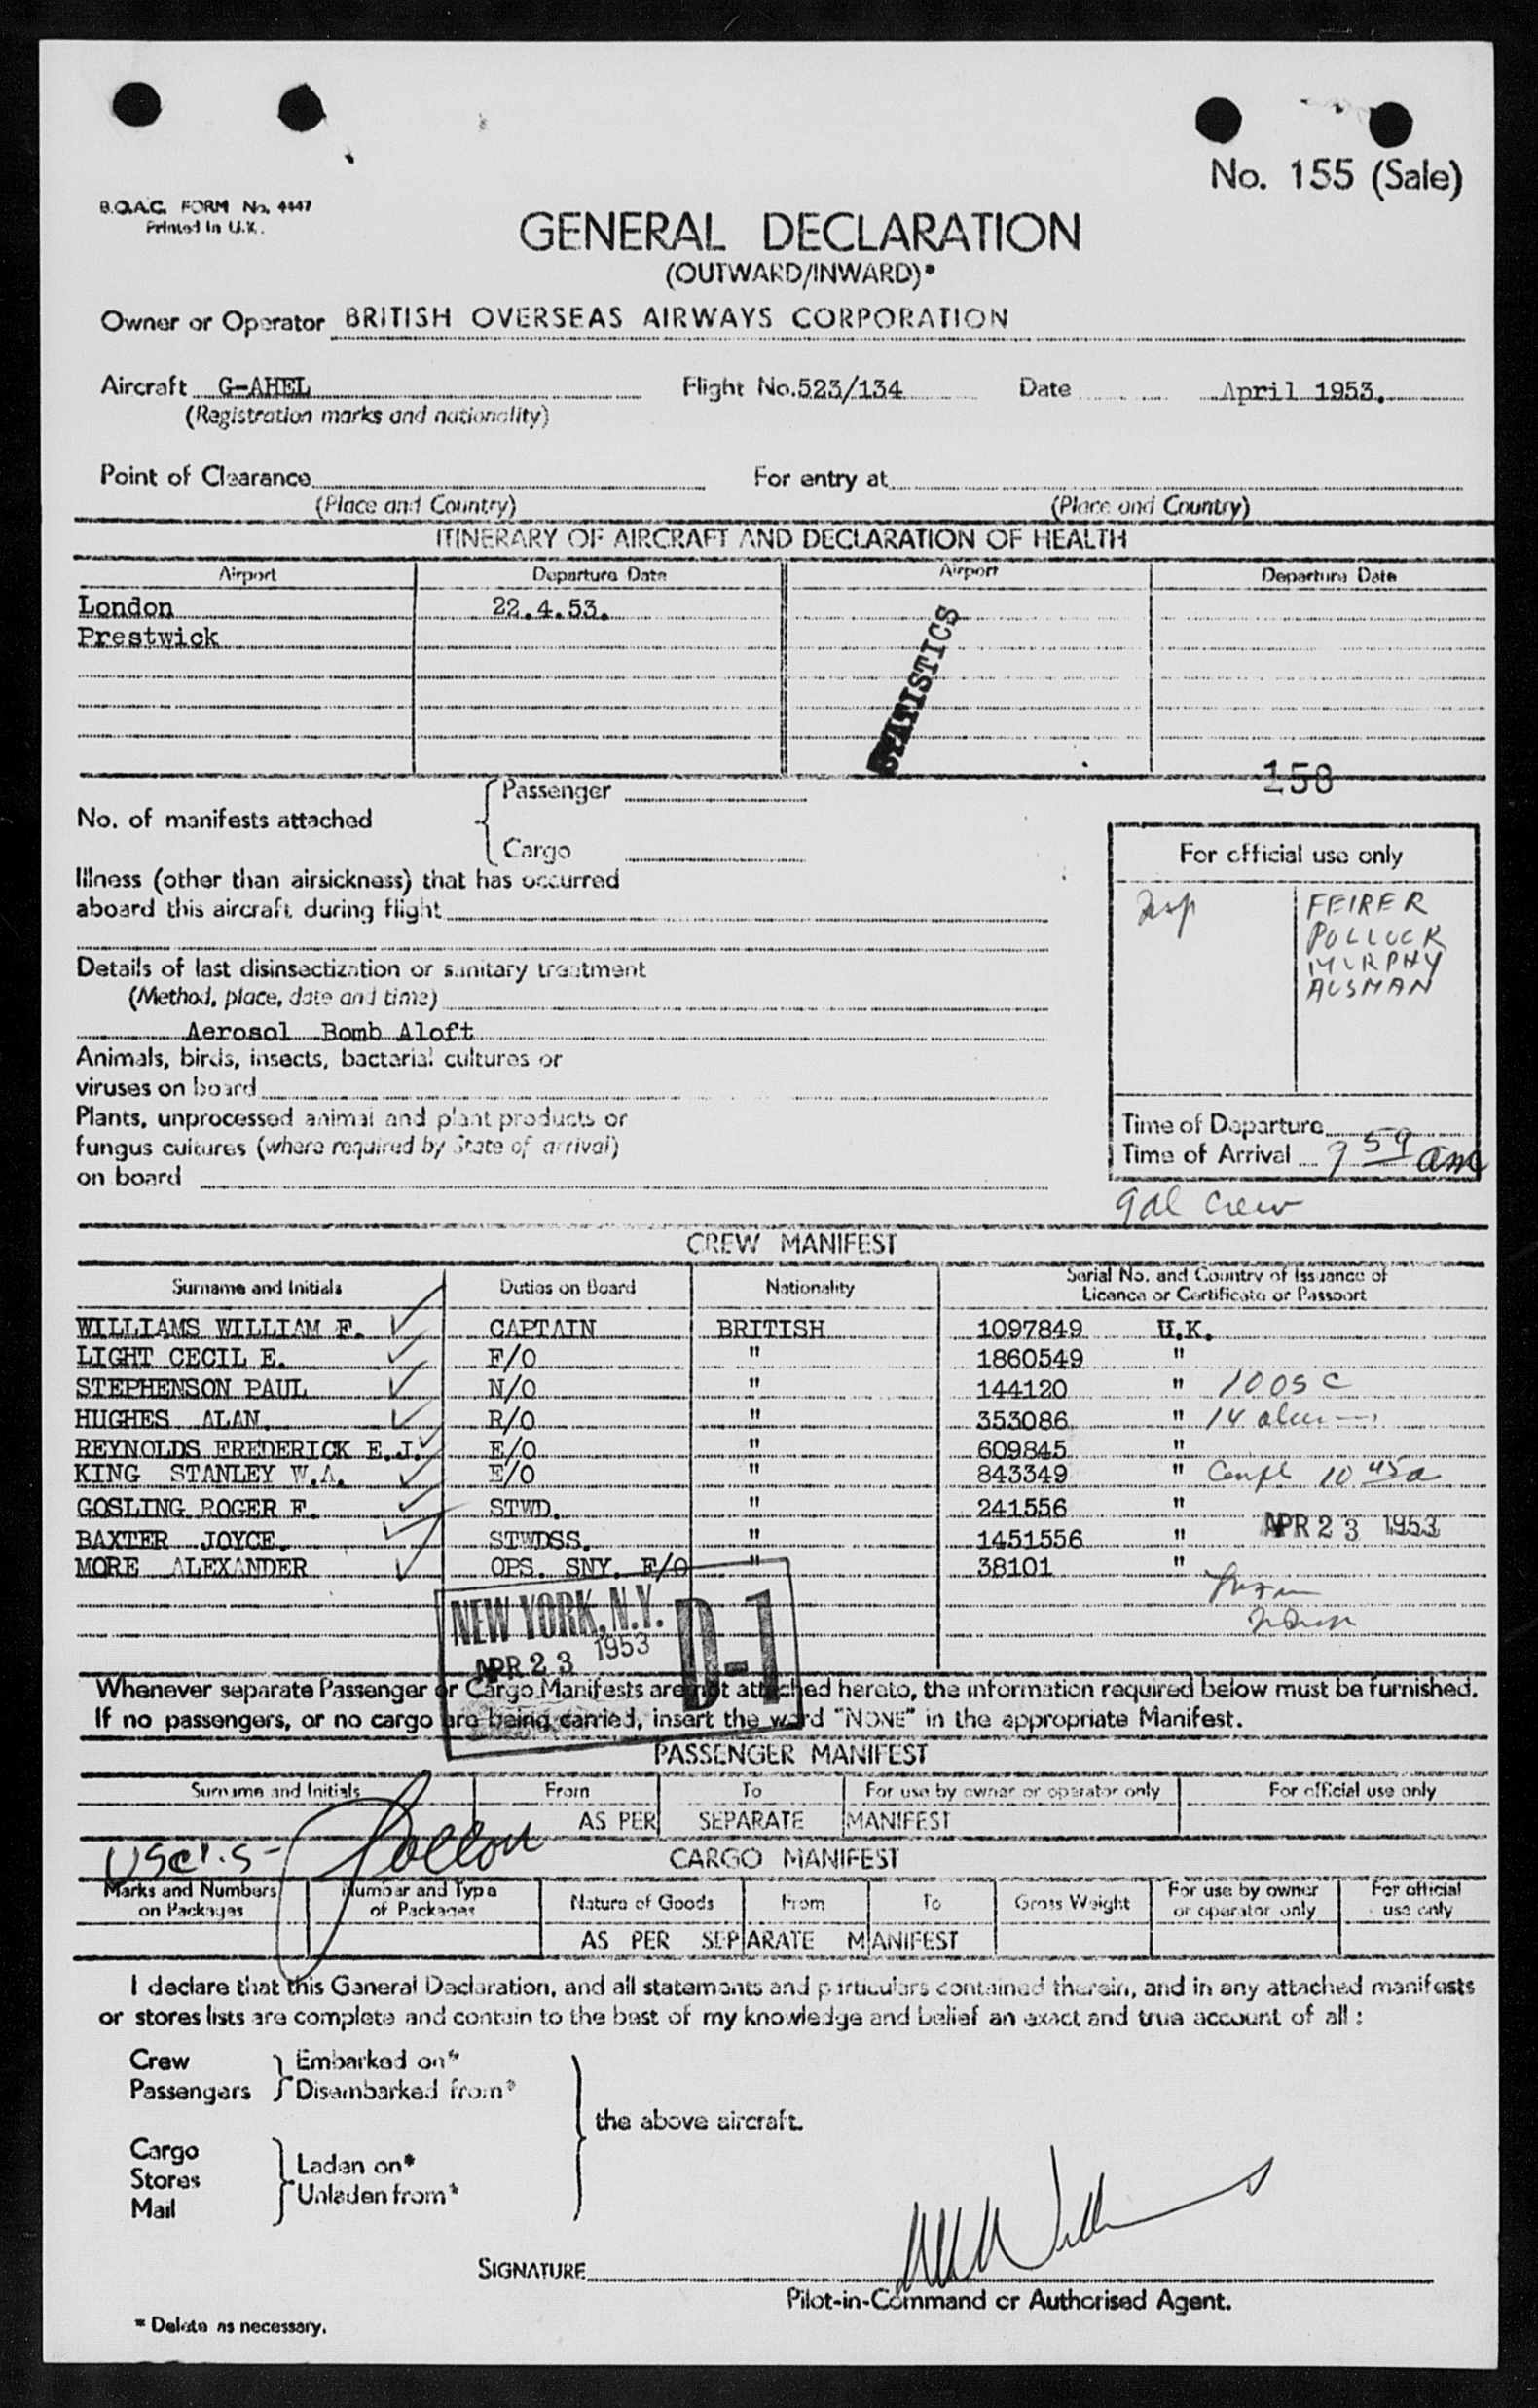 No. 155 (Sale)
B.O.A.C. FORM No. 4447
Printed in U.K.
GENERAL DECLARATION
(OUTWARD/INWARD)*
Owner or Operator BRITISH OVERSEAS AIRWAYS CORPORATION
Aircraft G-AHEL Flight No. 523/134 Date April 1953.
(Registration marks and nationality)
Point of Clearance For entry at
(Place and Country) (Place and Country)
ITINERARY OF AIRCRAFT AND DECLARATION OF HEALTH
Airport Departure Date Airport Departure Date
London 22.4.53.
Prestwick
STATISTICS
158
No. of manifests attached { Passenger
Cargo
Illness (other than airsickness) that has occurred
aboard this aircraft during flight
Details of last disinsectization or sanitary treatment
(Method, place, date and time)
Aerosol Bomb Aloft
Animals, birds, insects, bacterial cultures or
viruses on board
Plants, unprocessed animal and plant products or
fungus cultures (where required by State of arrival)
on board
For official use only
Insp FEIRER
POLLOCK
MURPHY
AUSMAN
Time of Departure
Time of Arrival 9 59 am
gal crew
CREW MANIFEST
Surname and Initials Duties on Board Nationality Serial No. and Country of Issuance of
Licence or Certificate or Passport
WILLIAMS WILLIAM F. CAPTAIN BRITISH 1097849 U.K.
LIGHT CECIL E. F/O " 1860549 "
STEPHENSON PAUL N/O " 144120 " 1005 C
HUGHES ALAN. R/O " 353086 " 14
REYNOLDS FREDERICK E.J. E/O " 609845 "
KING STANLEY W.A. E/O " 843349 " Compl 10 45 a
GOSLING ROGER F. STWD. " 241556 "
BAXTER JOYCE. STWDSS. " 1451556 " APR 23 1953
MORE ALEXANDER OPS. SNY. F/O " 38101 "
NEW YORK, N.Y. D-1
APR 23 1953
Whenever separate Passenger or Cargo Manifests are not attached hereto, the information required below must be furnished.
If no passengers, or no cargo are being carried, insert the word "NONE" in the appropriate Manifest.
PASSENGER MANIFEST
Surname and Initials From To For use by owner or operator only For official use only
AS PER SEPARATE MANIFEST
CARGO MANIFEST
Marks and Numbers on Packages Number and Type of Packages Nature of Goods From To Gross Weight For use by owner or operator only For official use only
AS PER SEPARATE MANIFEST
I declare that this General Declaration, and all statements and particulars contained therein, and in any attached manifests
or stores lists are complete and contain to the best of my knowledge and belief an exact and true account of all :
Crew } Embarked on*
Passengers } Disembarked from*
the above aircraft.
Cargo
Stores } Laden on*
Mail } Unladen from*
SIGNATURE
Pilot-in-Command or Authorised Agent.
* Delete as necessary.